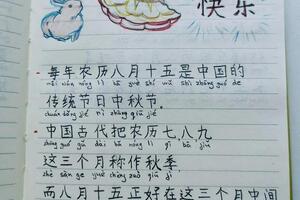 快乐
每年农历八月十五是中国的
měi nián nóng lì bā yuè shí wǔ shì zhōng guó de
传统节日中秋节.
chuán tǒng jié rì zhōng qiū jié
中国古代把农历七、八九
zhōng guó gǔ dài bǎ nóng lì qī bā jiǔ
这三个月称作秋季,
zhè sān gè yuè chēng zuò qiū jì
而八月十五正好在这三个月中间